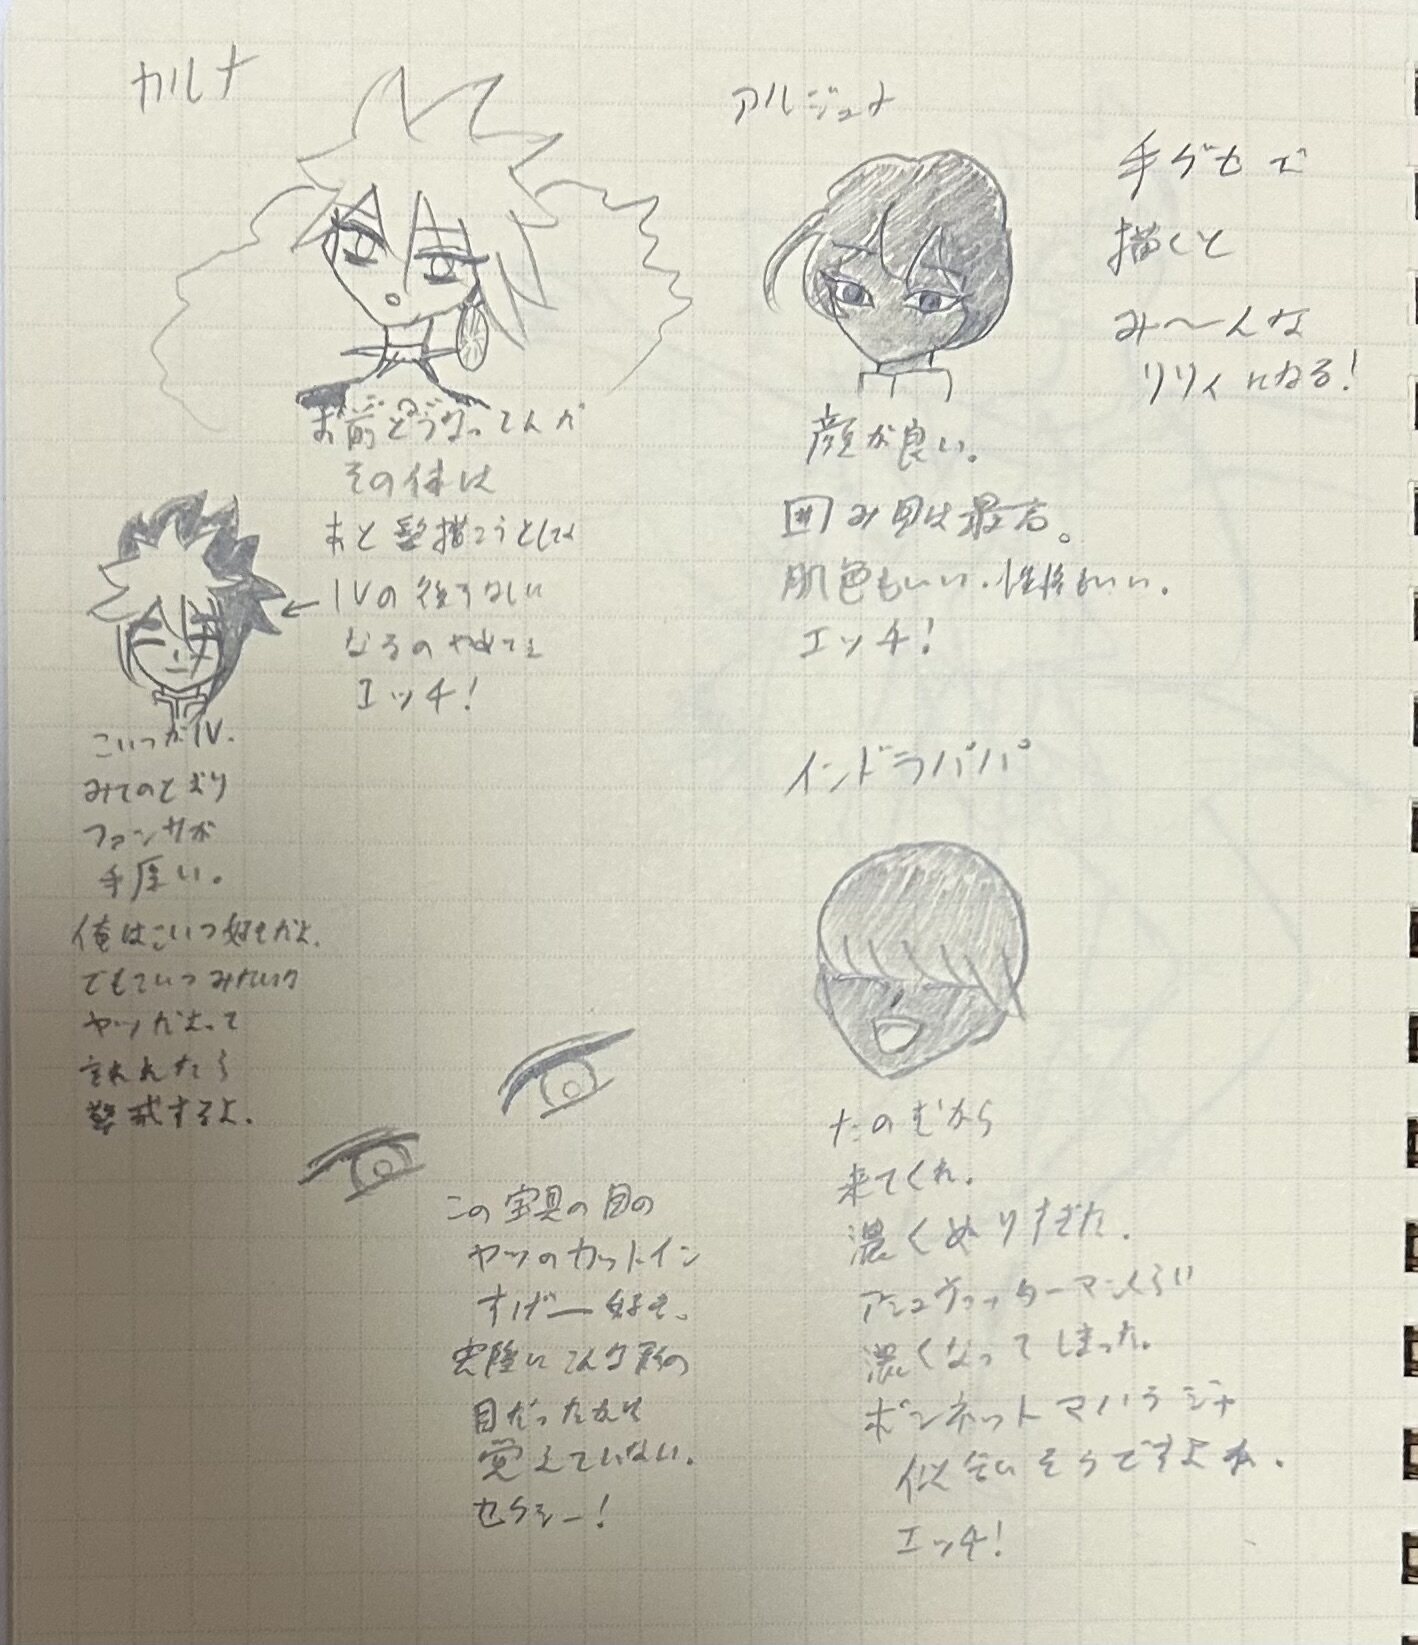 カルナ
お前どうなってんだ
その体は
あと髪描こうとして
IVの後ろ
なるのやめて
エッチ!
こいつがIV.
みてのとおり
ファンサが
手厚い。
俺はこいつ好きだよ.
でもこいつみたいな
ヤツだよって
言われたら
警戒するよ.
この宝具の目の
ヤツのカットイン
すげー好き.
実際にこんな形の
目だったかは
覚えていない.
セクシー!
アルジュナ
顔が良い。
囲み目は最高。
肌色もいい.性格もいい.
エッチ!
手グセで
描くと
み〜んな
リリィになる!
インドラパパ
たのむから
来てくれ.
濃くぬりすぎた.
アシュヴァッターマンくらい
濃くなってしまった.
ボンネットマハラジャ
似合いそうですよね.
エッチ!